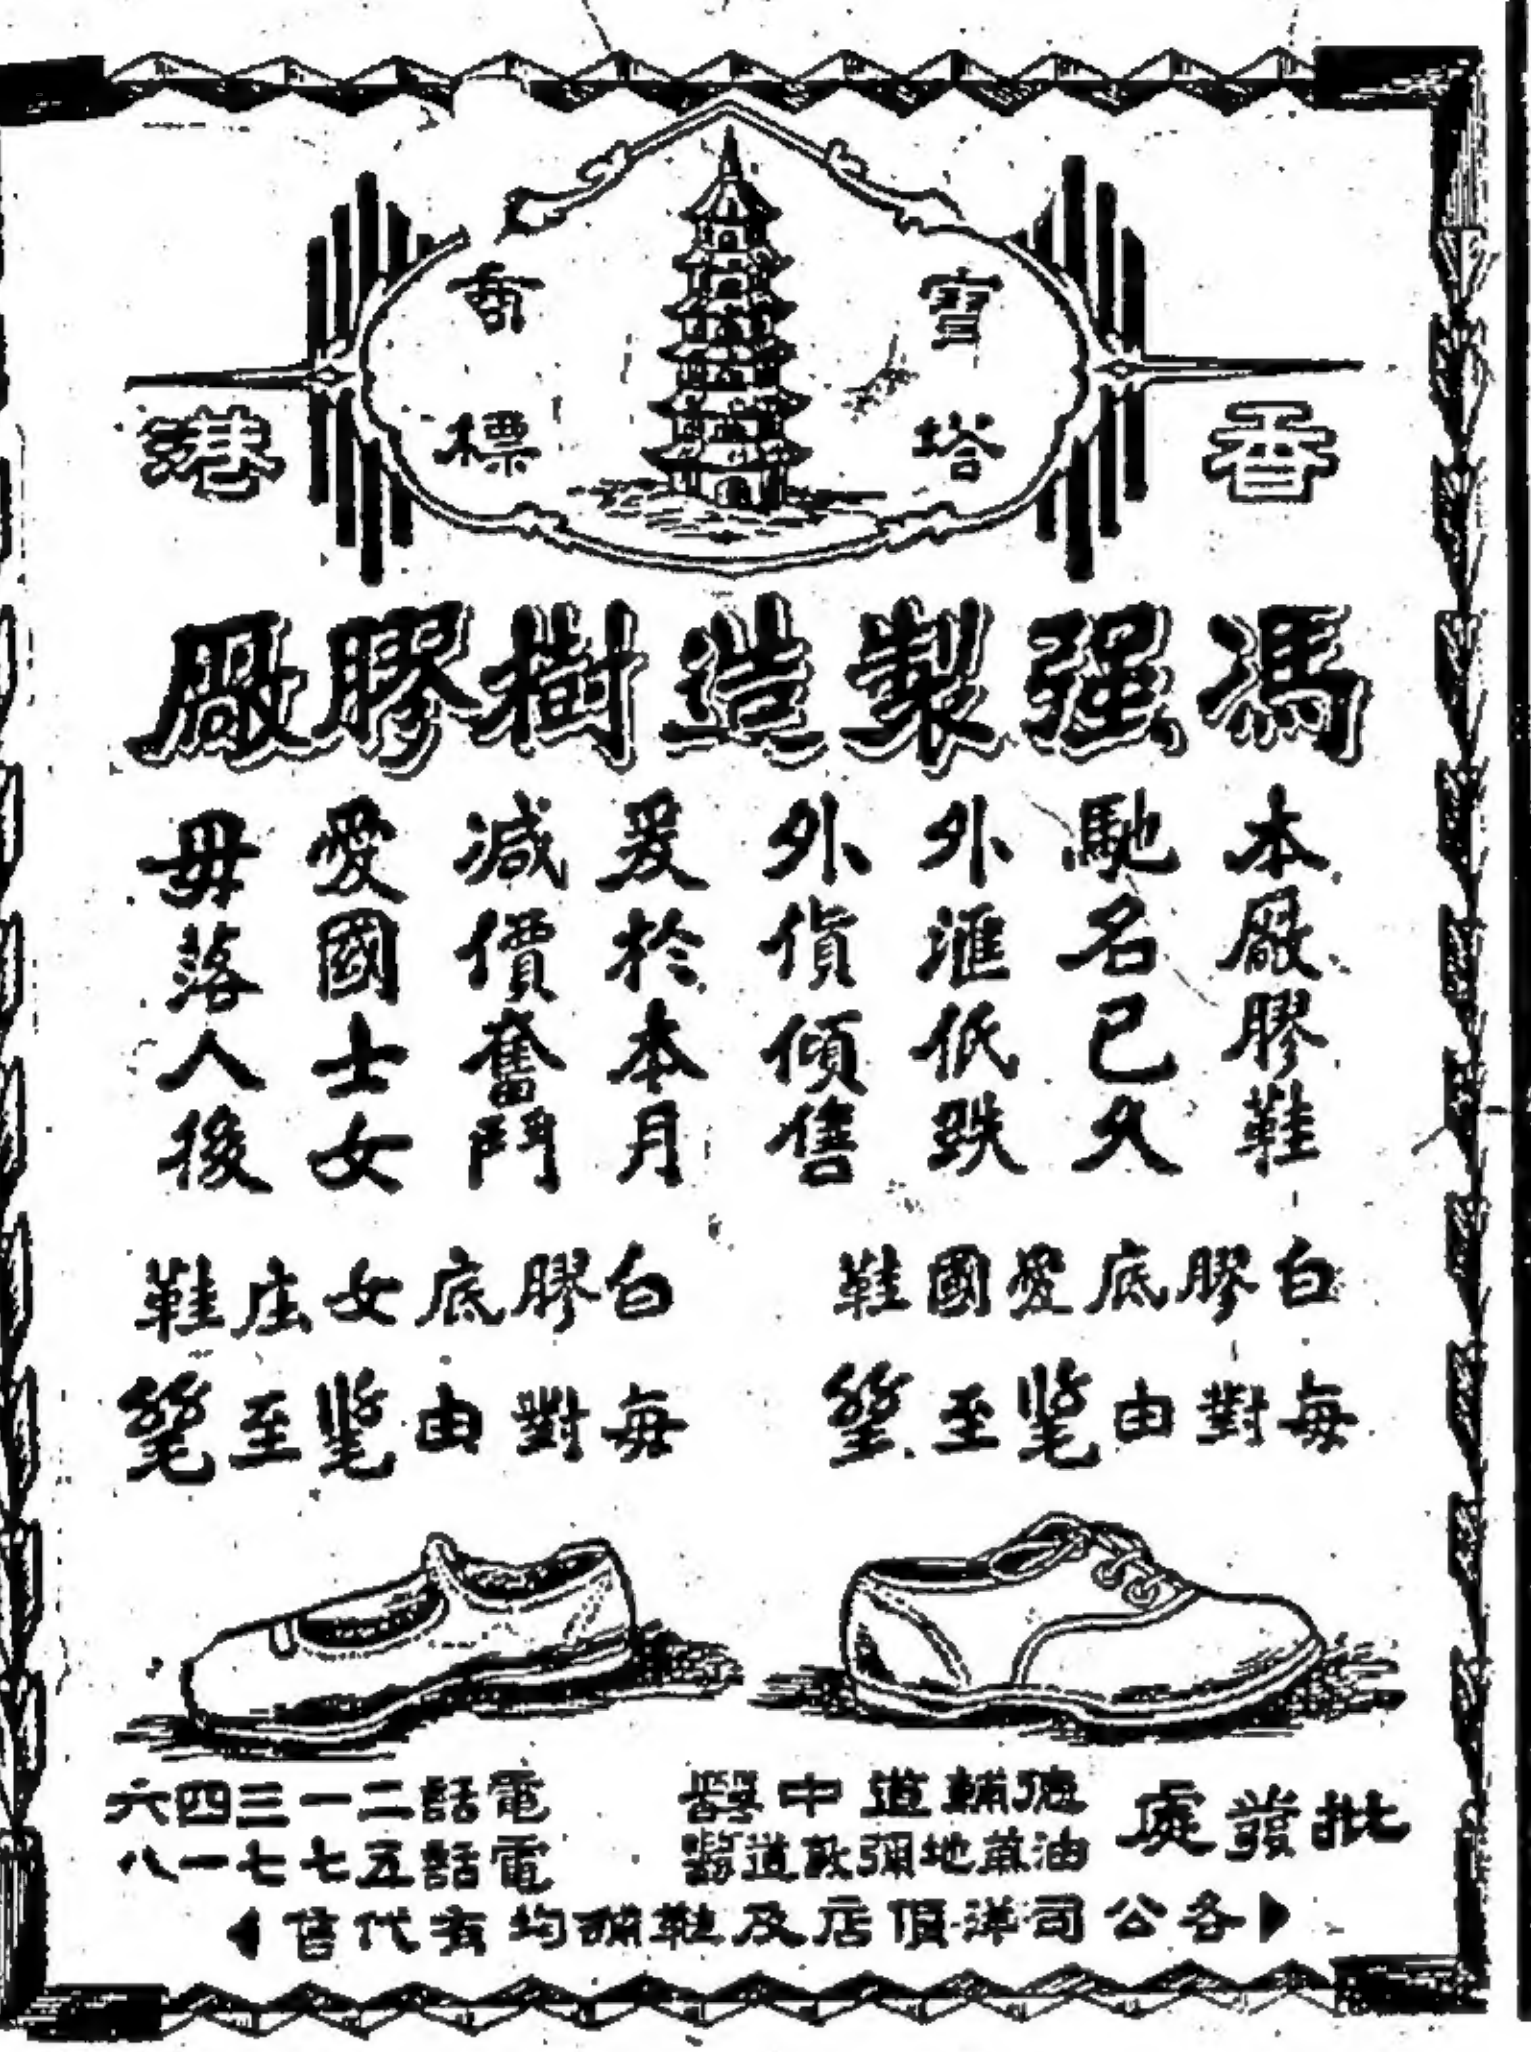 香港
寶塔
商標
馮强製造樹膠廠
本廠膠鞋
馳名已久
外滙低跌
外貨傾售
爰於本月
減價奮鬥
愛國士女
毋落人後
白膠底愛國鞋
每對由至
白膠底女庄鞋
每對由至
批發處
德輔道中
電話二一三四六
油蔴地彌敦道
電話五七七一八
各公司洋貨店及鞋舖均有代售